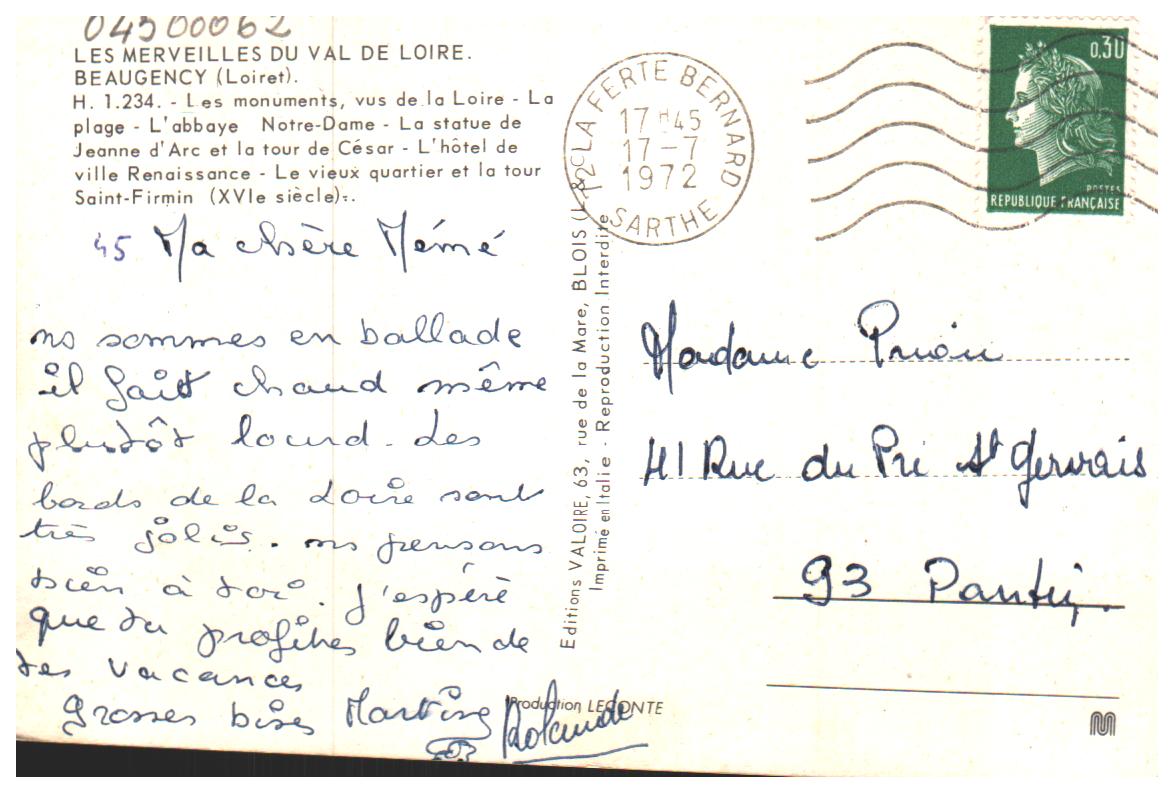 04500062
LES MERVEILLES DU VAL DE LOIRE.
BEAUGENCY (Loiret).
H. 1.234. - Les monuments, vus de la Loire - La
plage - L'abbaye Notre-Dame - La statue de
Jeanne d'Arc et la tour de César - L'hôtel de
ville Renaissance - Le vieux quartier et la tour
Saint-Firmin (XVIe siècle).
45 Ma chère Mémé
ns sommes en ballade
il fait chaud même
plutôt lourd - Les
bords de la Loire sont
très jolis. ns pensons
bien à toi. J'espère
que tu profites bien de
tes vacances
Grosses bises Martine
Rolande
Editions VALOIRE, 63, rue de la Mare, BLOIS (L.&C
Imprimé en Italie - Reproduction Interdite
Production LECONTE
72 LA FERTE BERNARD
17H45
17-7
1972
SARTHE
0,30
POSTES
REPUBLIQUE FRANÇAISE
Madame
41 Rue du Pré St Gervais
93 Pantin.
M